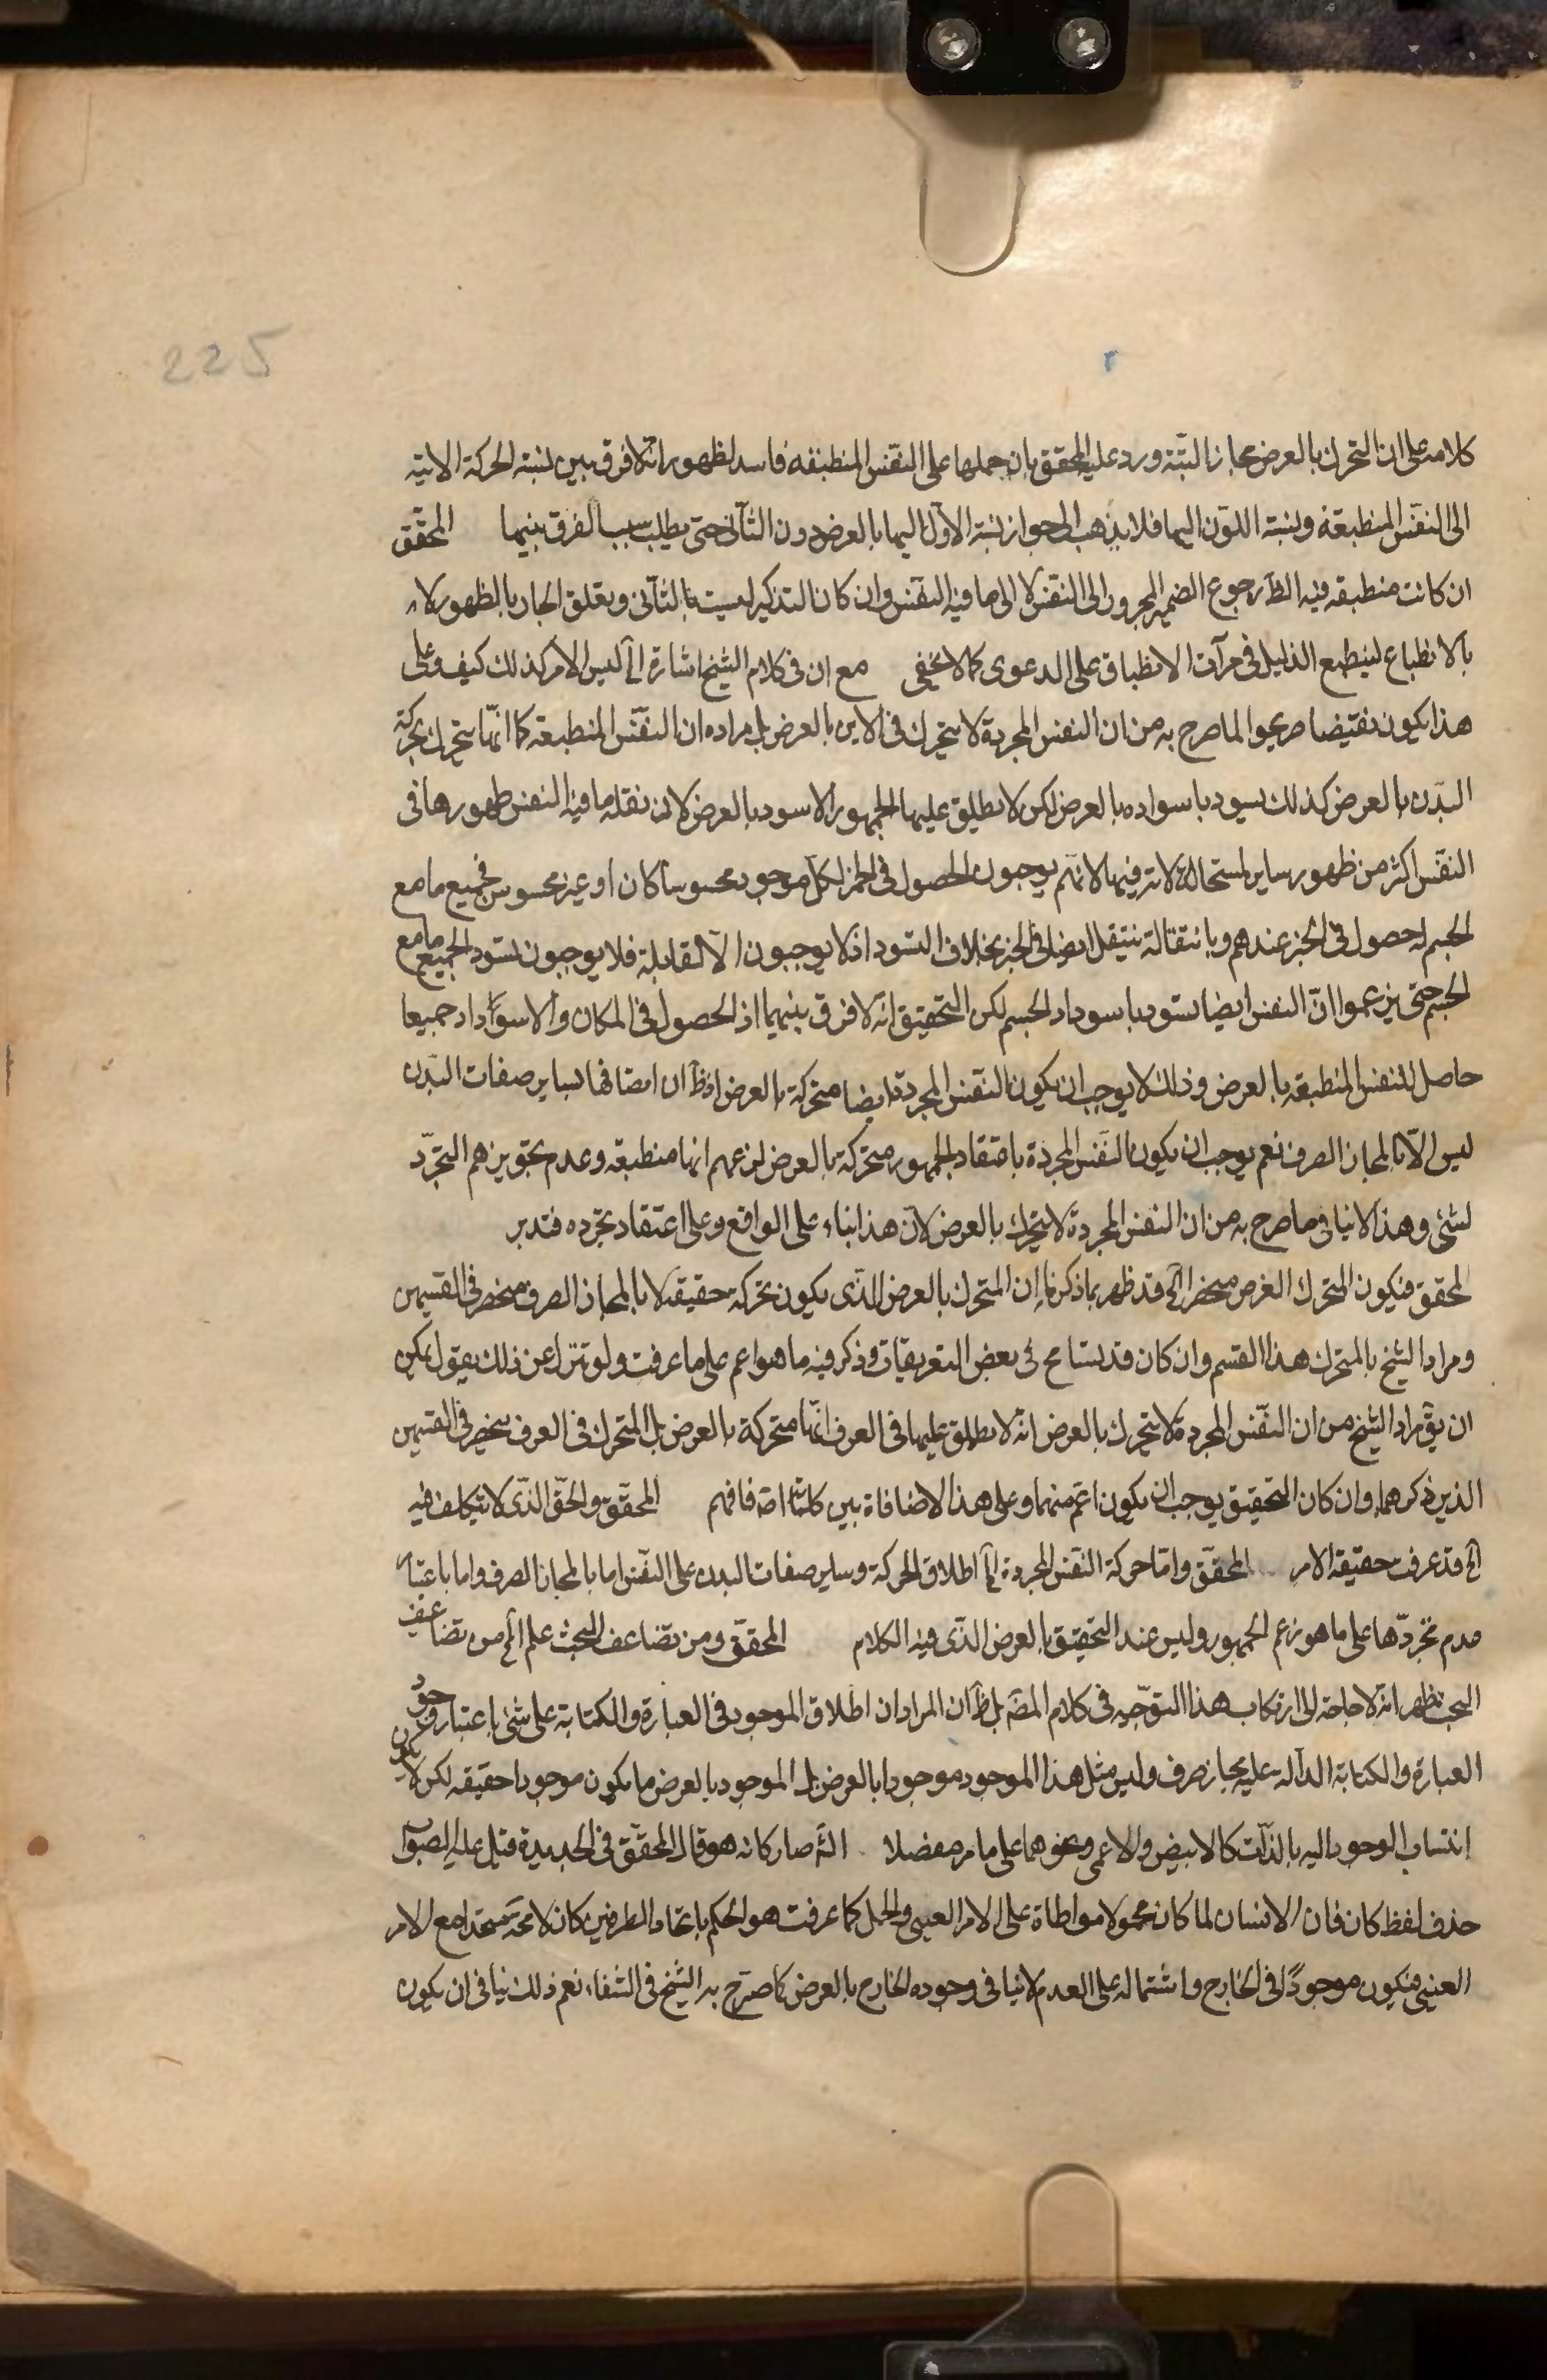 225
كلامه على ان التحرك بالعرض مجاز البتّة ورد عليه المحقق بان حملها على النفس المنطبقه فاسد لظهور انّه لا فرق بين نسبة الحركة الاينيه
الى النفس المنطبعة ونسبة اللون اليها فلا يذهب الى جواز نسبة الاوّل اليها بالعرض دون الثانى حتى يطلب سبب الفرق بينهما المحقّق
ان كانت منطبقه فيه الظّ رجوع الضمير المجرور الى النفس لا الى ما فيه النفس وان كان التذكير ليست بالثانى وتعلق الجار بالظهور لا
بالانطباع لينطبع الدليل فى مرآت الانطباق على الدعوى كما لا يخفى مع ان فى كلام الشيخ اشارة الخ ليس الامر كذلك كيف وعلى
هذا يكون نقيضا صريحا لما صرح به من ان النفس المجردة لا يتحرك فى الاين بالعرض بل مراده ان النفس المنطبعة كما انّها يتحرك بحركة
البدن بالعرض كذلك يسود باسواده بالعرض لكن لا يطلق عليها الجمهور الاسود بالعرض لان نقله ما فيه النفس ظهورها فى
النفس اكثر من ظهور ساير استحالاته فيها لانهم يوجبون الحصول فى الحيز لكل موجود محسوسا كان او غير محسوس فجميع ما مع
الجسم له حصول فى الحيز عندهم وبانتقاله ينتقل ايضا فى الحيز بخلاف التسود اذ لا يوجبون الا لقابله فلا يوجبون تسود الجميع ما مع
الجسم حتى يزعموا انّ النفس ايضا تسود باسوداد الجسم لكن التحقيق انه لا فرق بينهما اذ الحصول فى المكان والاسوداد جميعا
حاصل للنفس المنطبقه بالعرض وذلك لا يوجب ان يكون النفس المجردة ايضا متحركة بالعرض اذ ظّ ان اتصافها بساير صفات البدن
ليس الّا بالمجاز الصرف نعم يوجب ان يكون النفس المجردة باعتقاد الجمهور متحركة بالعرض لزعمهم انها منطبعة وعدم تجويزهم التجرّد
لشئ وهذا لا ينافى ما صرح به من ان النفس المجردة لا يتحرك بالعرض لانّ هذا بناء على الواقع وعلى اعتقاد تجرده فتدبر
المحقق فيكون المتحرك الغرض منحصرا الخ قد ظهر بما ذكرنا ان المتحرك بالعرض الذى يكون تحركه حقيقة لا بالمجاز الصرف منحصر فى القسمين
ومراد الشيخ بالمتحرك هذا القسم وان كان قد يسامح فى بعض التعريفات وذكر فيه ما هو اعم على ما عرفت ولو تنزل عن ذلك يقول يمكن
ان يقّ مراد الشيخ من ان النفس المجردة لا يتحرك بالعرض انّه لا يطلق عليها فى العرف انّها متحركة بالعرض بل المتحرك فى العرف ينحصر فى القسمين
الذين ذكرهما وان كان التحقيق يوجب ان يكون اعم منهما وعلى هذا لا منافاة بين كلماته فافهم المحقّق والحقّ الذى لا يتكلف فيه
الخ قد عرفت حقيقة الامر المحقّق وامّا حركة النفس المجردة الخ اطلاق الحركة وساير صفات البدن على النفس اما بالمجاز الصرف واما باعتبار
عدم تجرّدها على ما هو زعم الجمهور وليس عند التحقيق بالعرض الذى فيه الكلام المحقّق ومن تضاعف البحث علم الخ من تضاعيف
البحث ظهر انّه لا حاجة الى ارتكاب هذا التوجيه فى كلام المصّ بل ظّ ان المراد ان اطلاق الموجود فى العبارة والكتابة على شئ باعتبار وجود
العبارة والكتابة الدالّة عليه مجاز صرف وليس مثل هذا الموجود موجودا بالعرض بل الموجود بالعرض ما يكون موجودا حقيقه لكن لا يكون
انتساب الوجود اليه بالذات كالابيض والاعمى ونحوهما على ما مر مفصلا الشّ صار كانه هو قال المحقّق فى الجديدة قيل عليه الصواب
حذف لفظ كان فان الانسان لما كان محمولا مواطاة على الامر العينى والحمل كما عرفت هو الحكم باتحاد الطرفين كان لا محّة متحدا مع الامر
العينى فيكون موجودًا فى الخارج واشتماله على العدم لا ينافى وجوده الخارج بالعرض كما صرّح به الشيخ فى الشفاء نعم ذلك ينافى ان يكون